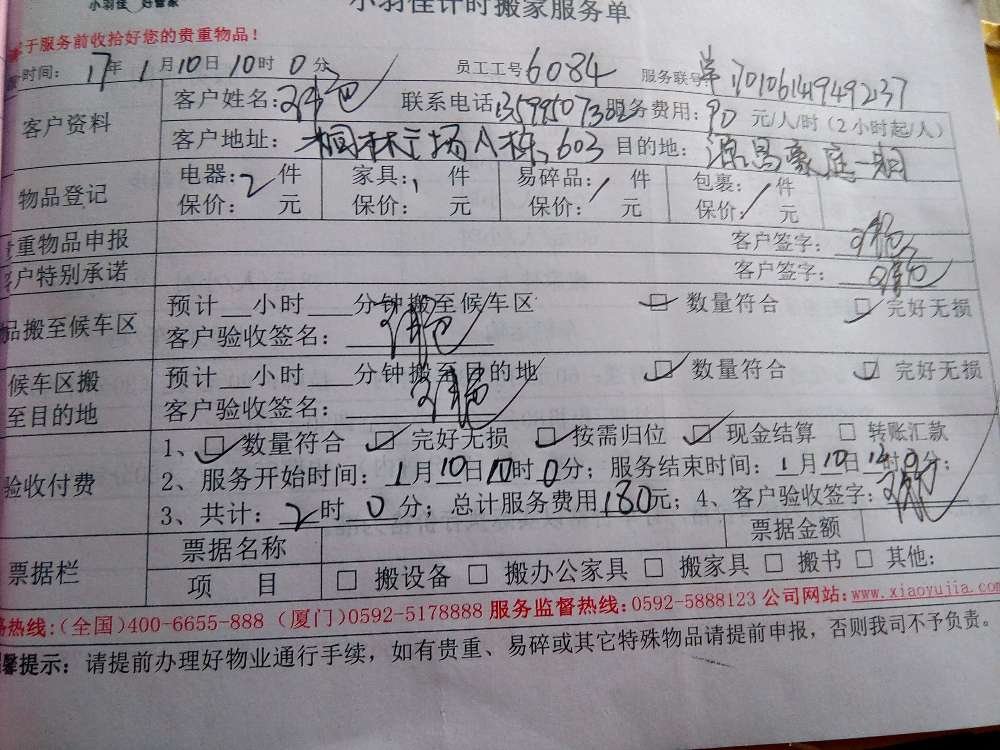 小羽佳 好管家
小羽佳计时搬家服务单
于服务前收拾好您的贵重物品！
时间： 17年 1月10日10时 0分 员工工号6084 服务联号
客户资料 客户姓名： 联系电话 服务费用：90 元/人/时（2小时起/人）
客户地址： A栋603 目的地：源昌豪庭一期
物品登记 电器：2 件 家具： 件 易碎品： 件 包裹： 件
保价： 元 保价： 元 保价： 元 保价： 元
贵重物品申报 客户签字：
客户特别承诺 客户签字：
品搬至候车区 预计__小时 ___分钟搬至候车区 ☑ 数量符合 ☑ 完好无损
客户验收签名：
候车区搬至目的地 预计__小时 ___分钟搬至目的地 ☑ 数量符合 ☑ 完好无损
客户验收签名：
验收付费 1、☑ 数量符合 ☑ 完好无损 ☑ 按需归位 ☑ 现金结算 □ 转账汇款
2、服务开始时间：1月10日10时0分；服务结束时间：1月10日 时0分；
3、共计：2时 0 分；总计服务费用180元；4、客户验收签字：
票据栏 票据名称 票据金额
项 目 □ 搬设备 □ 搬办公家具 □ 搬家具 □ 搬书 □ 其他：
务热线：(全国)400-6655-888 (厦门)0592-5178888 服务监督热线：0592-5888123 公司网站：www.xiaoyujia.com
馨提示：请提前办理好物业通行手续，如有贵重、易碎或其它特殊物品请提前申报，否则我司不予负责。